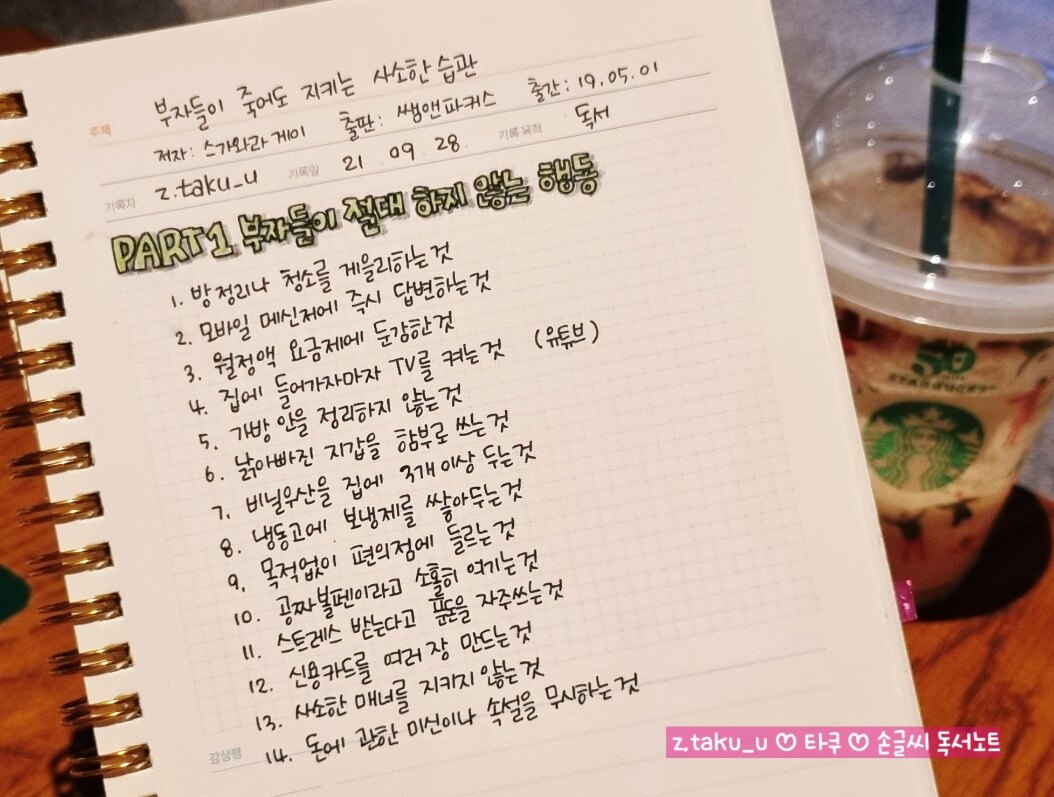 주제 부자들이 죽어도 지키는 사소한 습관
저자: 스가와라 게이 출판: 쌤앤파커스 출간: 19.05.01
기록자 z.taku_u 기록일 21. 09. 28. 기록 목적 독서
PART1 부자들이 절대 하지 않는 행동
1. 방정리나 청소를 게을리하는것
2. 모바일 메신저에 즉시 답변하는것
3. 월정액 요금제에 둔감한것
4. 집에 들어가자마자 TV를 켜는것 (유튜브)
5. 가방 안을 정리하지 않는것
6. 낡아빠진 지갑을 함부로 쓰는것
7. 비닐우산을 집에 3개 이상 두는것
8. 냉동고에 보냉제를 쌓아두는것
9. 목적없이 편의점에 들르는것
10. 공짜볼펜이라고 소홀히 여기는것
11. 스트레스 받는다고 푼돈을 자주쓰는것
12. 신용카드를 여러 장 만드는것
13. 사소한 매너를 지키지 않는것
14. 돈에 관한 미신이나 속설을 무시하는것
감상평
50
STARBUCKS
z.taku_u ♡ 타쿠 ♡ 손글씨 독서노트